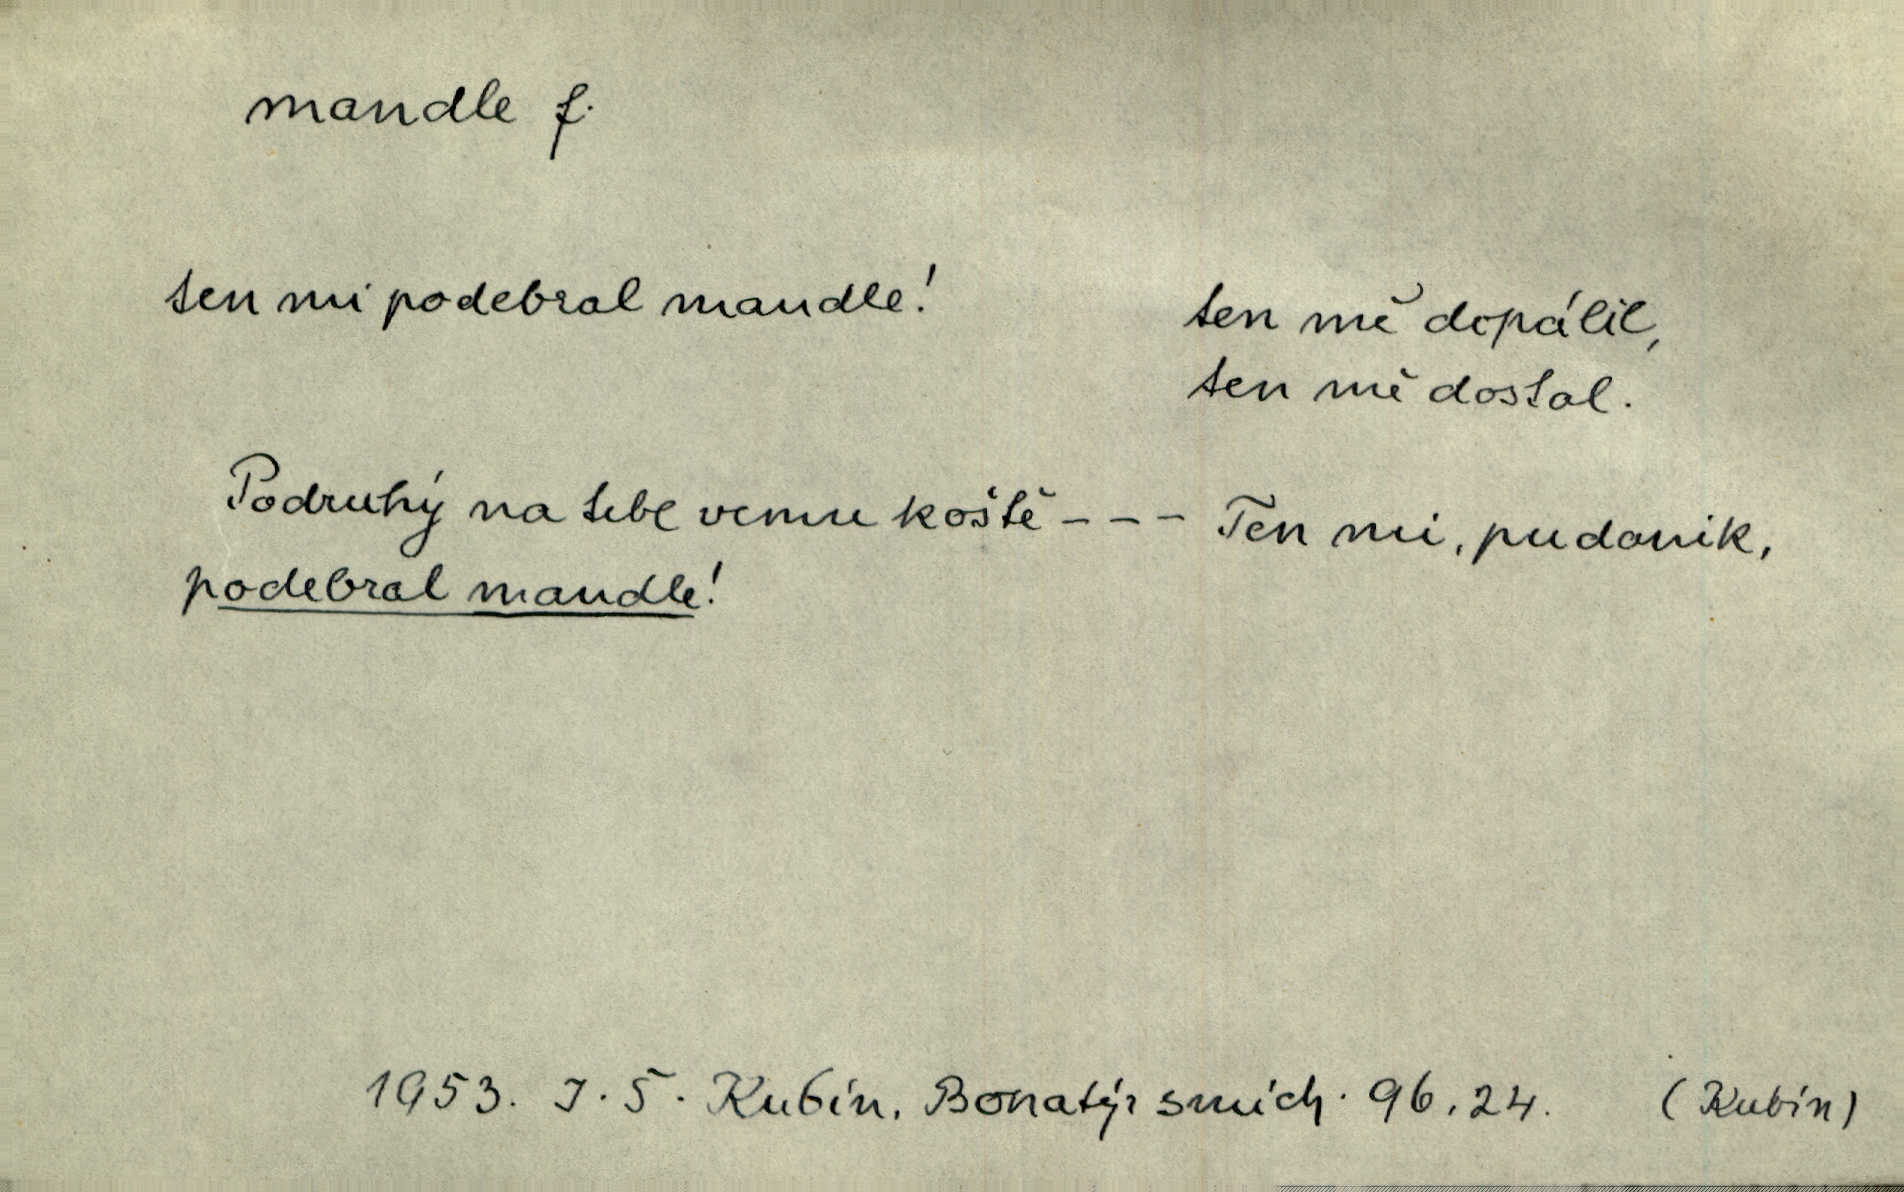 mandle f.
ten mi podebral mandle!
ten mě dopálil,
ten mě dostal.
Podruhý na tebe vemu koště - - - Ten mi, pudanik,
podebral mandle!
1953. J. Š. Kubín, Bonatýr smích. 96.24. (Kubín)